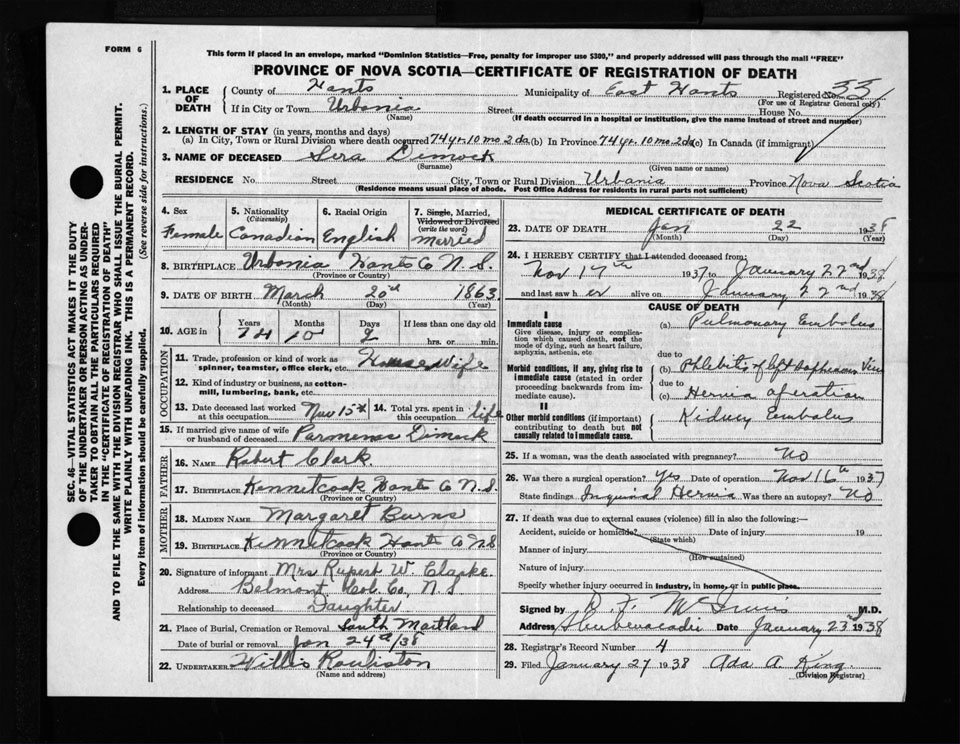 FORM 6
This form if placed in an envelope, marked "Dominion Statistics—Free, penalty for improper use $300," and properly addressed will pass through the mail "FREE"
PROVINCE OF NOVA SCOTIA—CERTIFICATE OF REGISTRATION OF DEATH
SEC. 46—VITAL STATISTICS ACT MAKES IT THE DUTY
OF THE UNDERTAKER OR PERSON ACTING AS UNDER-
TAKER TO OBTAIN ALL THE PARTICULARS REQUIRED
IN THE "CERTIFICATE OF REGISTRATION OF DEATH"
AND TO FILE THE SAME WITH THE DIVISION REGISTRAR WHO SHALL ISSUE THE BURIAL PERMIT.
WRITE PLAINLY WITH UNFADING INK. THIS IS A PERMANENT RECORD.
Every item of information should be carefully supplied. (See reverse side for instructions.)
1. PLACE OF DEATH County of Hants Municipality of East Hants Registered No. 33
(For use of Registrar General only)
If in City or Town Urbania Street House No.
(Name) (If death occurred in a hospital or institution, give the name instead of street and number)
2. LENGTH OF STAY (in years, months and days)
(a) In City, Town or Rural Division where death occurred 74 yr. 10 mo 2 da (b) In Province 74 yr. 10 mo 2 da (c) In Canada (if immigrant)
3. NAME OF DECEASED Sera Dimock
(Surname) (Given name or names)
RESIDENCE No. Street City, Town or Rural Division Urbania Province Nova Scotia
(Residence means usual place of abode. Post Office Address for residents in rural parts not sufficient)
4. Sex Female
5. Nationality (Citizenship) Canadian
6. Racial Origin English
7. Single, Married, Widowed or Divorced (write the word) Married
8. BIRTHPLACE Urbania Hants Co N.S.
(Province or Country)
9. DATE OF BIRTH March 20th 1863
(Month) (Day) (Year)
10. AGE in Years Months Days If less than one day old
74 10 2 hrs. or min.
OCCUPATION
11. Trade, profession or kind of work as spinner, teamster, office clerk, etc. Housewife
12. Kind of industry or business, as cotton-mill, lumbering, bank, etc.
13. Date deceased last worked at this occupation Nov 15th 14. Total yrs. spent in this occupation life
15. If married give name of wife or husband of deceased Parmenas Dimock
FATHER
16. NAME Robert Clark.
17. BIRTHPLACE Kennetcook Hants Co N.S.
(Province or Country)
MOTHER
18. MAIDEN NAME Margaret Burns
19. BIRTHPLACE Kennetcook Hants Co N.S
(Province or Country)
20. Signature of informant Mrs Rupert W. Clarke.
Address Belmont, Col. Co, N.S
Relationship to deceased Daughter
21. Place of Burial, Cremation or Removal South Maitland
Date of burial or removal Jan 24th/38
22. UNDERTAKER Willis Rouliston
(Name and address)
MEDICAL CERTIFICATE OF DEATH
23. DATE OF DEATH Jan 22 1938
(Month) (Day) (Year)
24. I HEREBY CERTIFY that I attended deceased from:
Nov 17th 1937 to January 22nd 1938
and last saw her alive on January 22nd 1938
CAUSE OF DEATH
I
Immediate cause
Give disease, injury or complication which caused death, not the mode of dying, such as heart failure, asphyxia, asthenia, etc
(a) Pulmonary Embolus
due to
Morbid conditions, if any, giving rise to immediate cause (stated in order proceeding backwards from immediate cause).
(b) Phlebitis of left Saphenous Vein
due to
(c) Hernia operation
II
Other morbid conditions (if important) contributing to death but not causally related to immediate cause.
Kidney Embolus
25. If a woman, was the death associated with pregnancy? No
26. Was there a surgical operation? Yes Date of operation Nov 16th 1937
State findings Inguinal Hernia Was there an autopsy? No
27. If death was due to external causes (violence) fill in also the following:—
Accident, suicide or homicide? Date of injury 19
(State which)
Manner of injury
(How sustained)
Nature of injury
Specify whether injury occurred in industry, in home, or in public place.
Signed by M.D.
Address Shubenacadie Date January 23rd 1938
28. Registrar's Record Number 4
29. Filed January 27 1938 Ada A. King.
(Division Registrar)